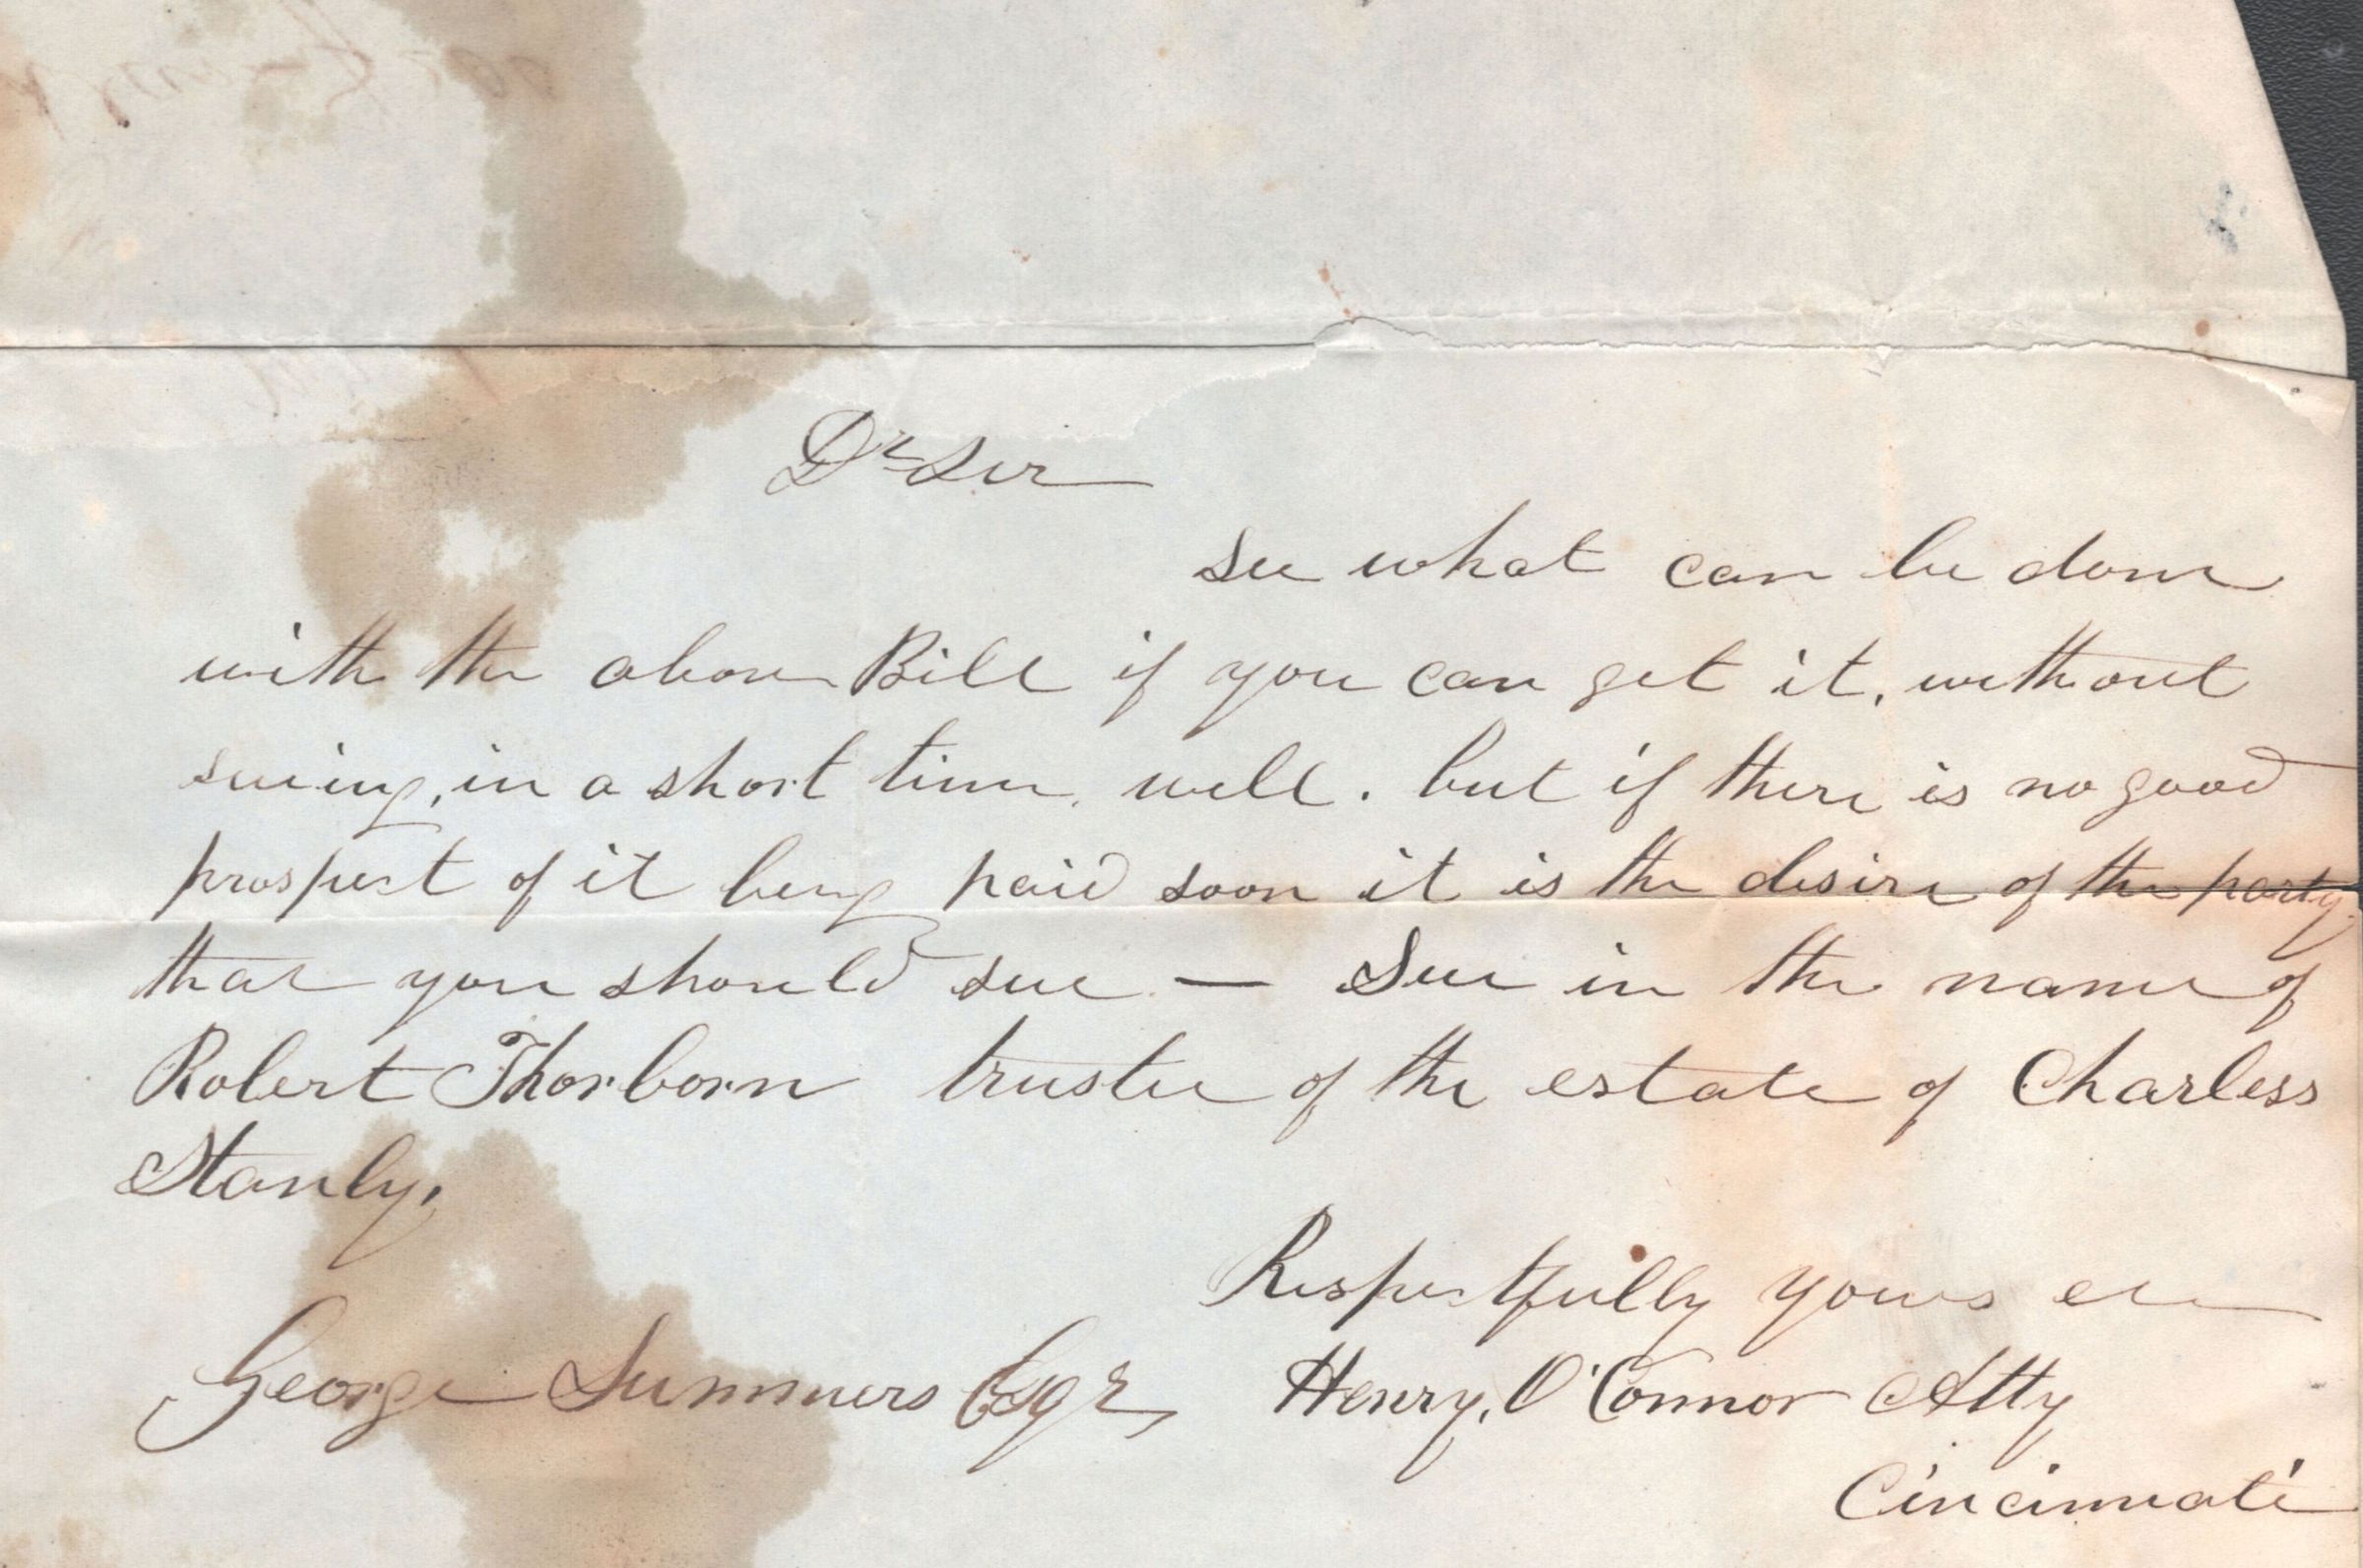 Dr Sir
see what can be done
with the above Bill if you can get it, without
sueing, in a short time, well. but if there is no good
prospect of it being paid soon it is the desire of the party
that you should sue — Sue in the name of
Robert Thorborn trustee of the estate of Charless
Stanly,
Respectfully yours
George Summers Esqr, Henry, O'Connor Atty
Cincinnati